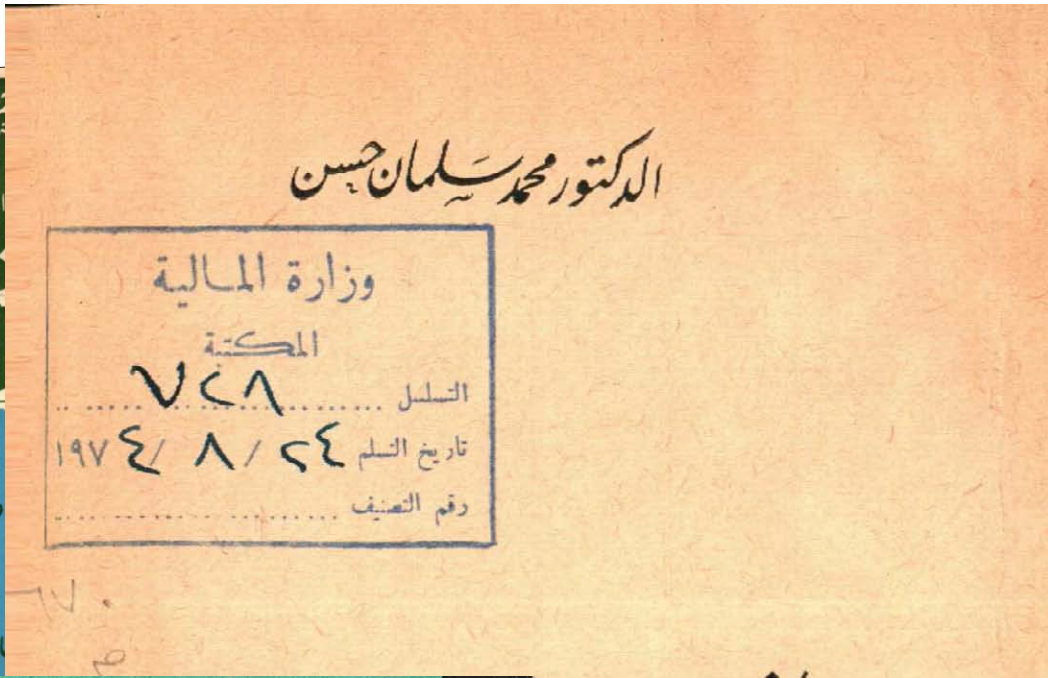 الدكتور محمد سلمان حسن
وزارة المالية
المكتبة
التسلسل ٧٢٨
تاريخ التسلم ٢٤ / ٨ / ١٩٧٤
رقم التصنيف
٦٧٠
م